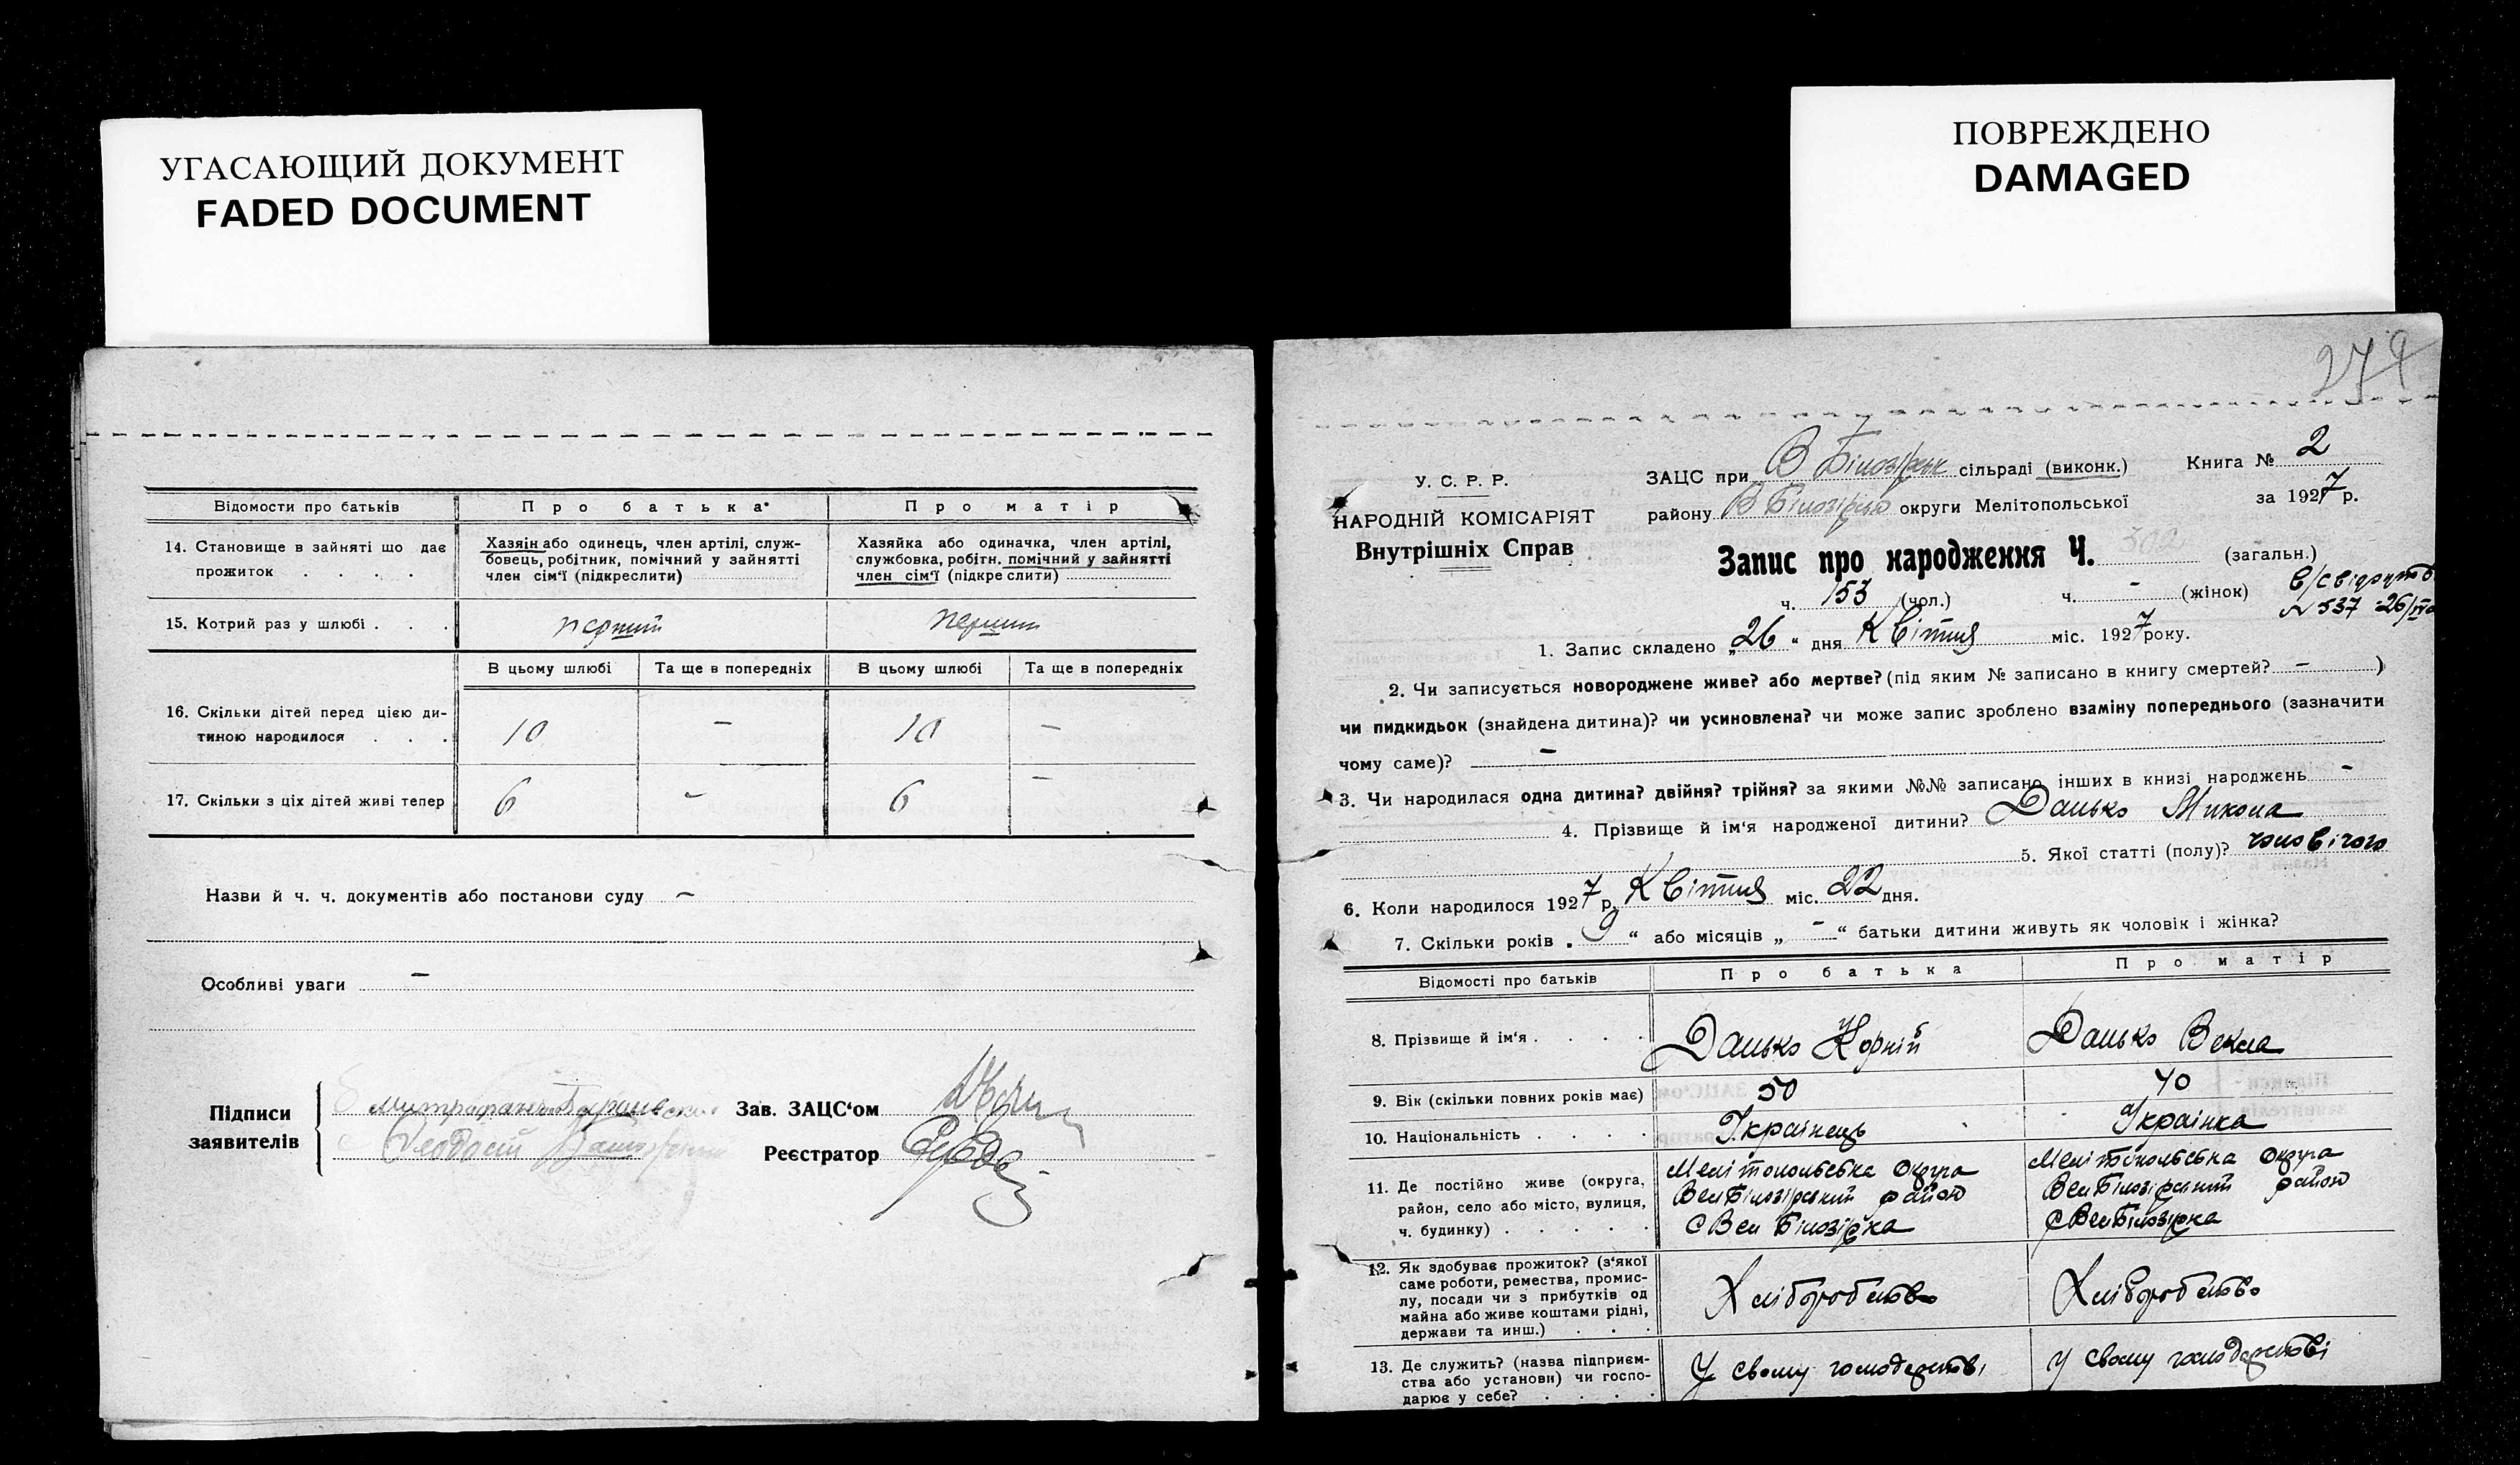 УГАСАЮЩИЙ ДОКУМЕНТ
FADED DOCUMENT
ПОВРЕЖДЕНО
DAMAGED
Відомости про батьків Про батька Про матір
14. Становище в зайняті що дає прожиток . . . .
Хазяін або одинець, член артілі, служ-
бовець, робітник, помічний у зайнятті
член сім'ї (підкреслити)
Хазяйка або одиначка, член артілі,
службовка, робітн. помічний у зайнятті
член сім'ї (підкреслити)
15. Котрий раз у шлюбі . . . перший перший
В цьому шлюбі Та ще в попередніх В цьому шлюбі Та ще в попередніх
16. Скільки дітей перед цією ди-
тиною народилося . . . 10 – 10 –
17. Скільки з ціх дітей живі тепер 6 – 6 –
Назви й ч. ч. документів або постанови суду –
Особливі уваги –
Підписи
заявителів
Зав. ЗАЦС'ом
Реєстратор
274
У. С. Р. Р.
НАРОДНІЙ КОМІСАРІЯТ
Внутрішніх Справ
ЗАЦС при В Білозірськ сільраді (виконк.) Книга № 2
району В Білозірськ округи Мелітопольської за 1927 р.
Запис про народження Ч. (загальн.)
ч. 153 (чол.) ч. – (жінок)
№ 537 26/IV
1. Запис складено „26“ дня Квітня міс. 1927 року.
2. Чи записується новороджене живе? або мертве? (під яким № записано в книгу смертей? – )
чи пидкидьок (знайдена дитина)? чи усиновлена? чи може запис зроблено взаміну попереднього (зазначити
чому саме)? –
3. Чи народилася одна дитина? двійня? трійня? за якими №№ записано інших в книзі народжень –
4. Прізвище й ім'я народженої дитини? Данько Микола
5. Якої статті (полу)? чоловічого
6. Коли народилося 1927 р. Квітня міс. 22 дня.
7. Скільки років „9“ або місяців „–“ батьки дитини живуть як чоловік і жінка?
Відомості про батьків Про батька Про матір
8. Прізвище й ім'я . . . . Данько Корній Данько Векла
9. Вік (скільки повних років має) 50 40
10. Національність . . . . Українець Українка
11. Де постійно живе (округа,
район, село або місто, вулиця,
ч. будинку) . . . . .
Мелітопольська округа
Вел Білозірський район
С Вел Білозірка
Мелітопольська округа
Вел Білозірський район
С Вел Білозірка
12. Як здобуває прожиток? (з'якої
саме роботи, ремества, промис-
лу, посади чи з прибутків од
майна або живе коштами рідні,
держави та инш.) . . .
Хліборобство Хліборобство
13. Де служить? (назва підприєм-
ства або установи) чи госпо-
дарює у себе? . . . .
У свому господарстві У свому господарстві